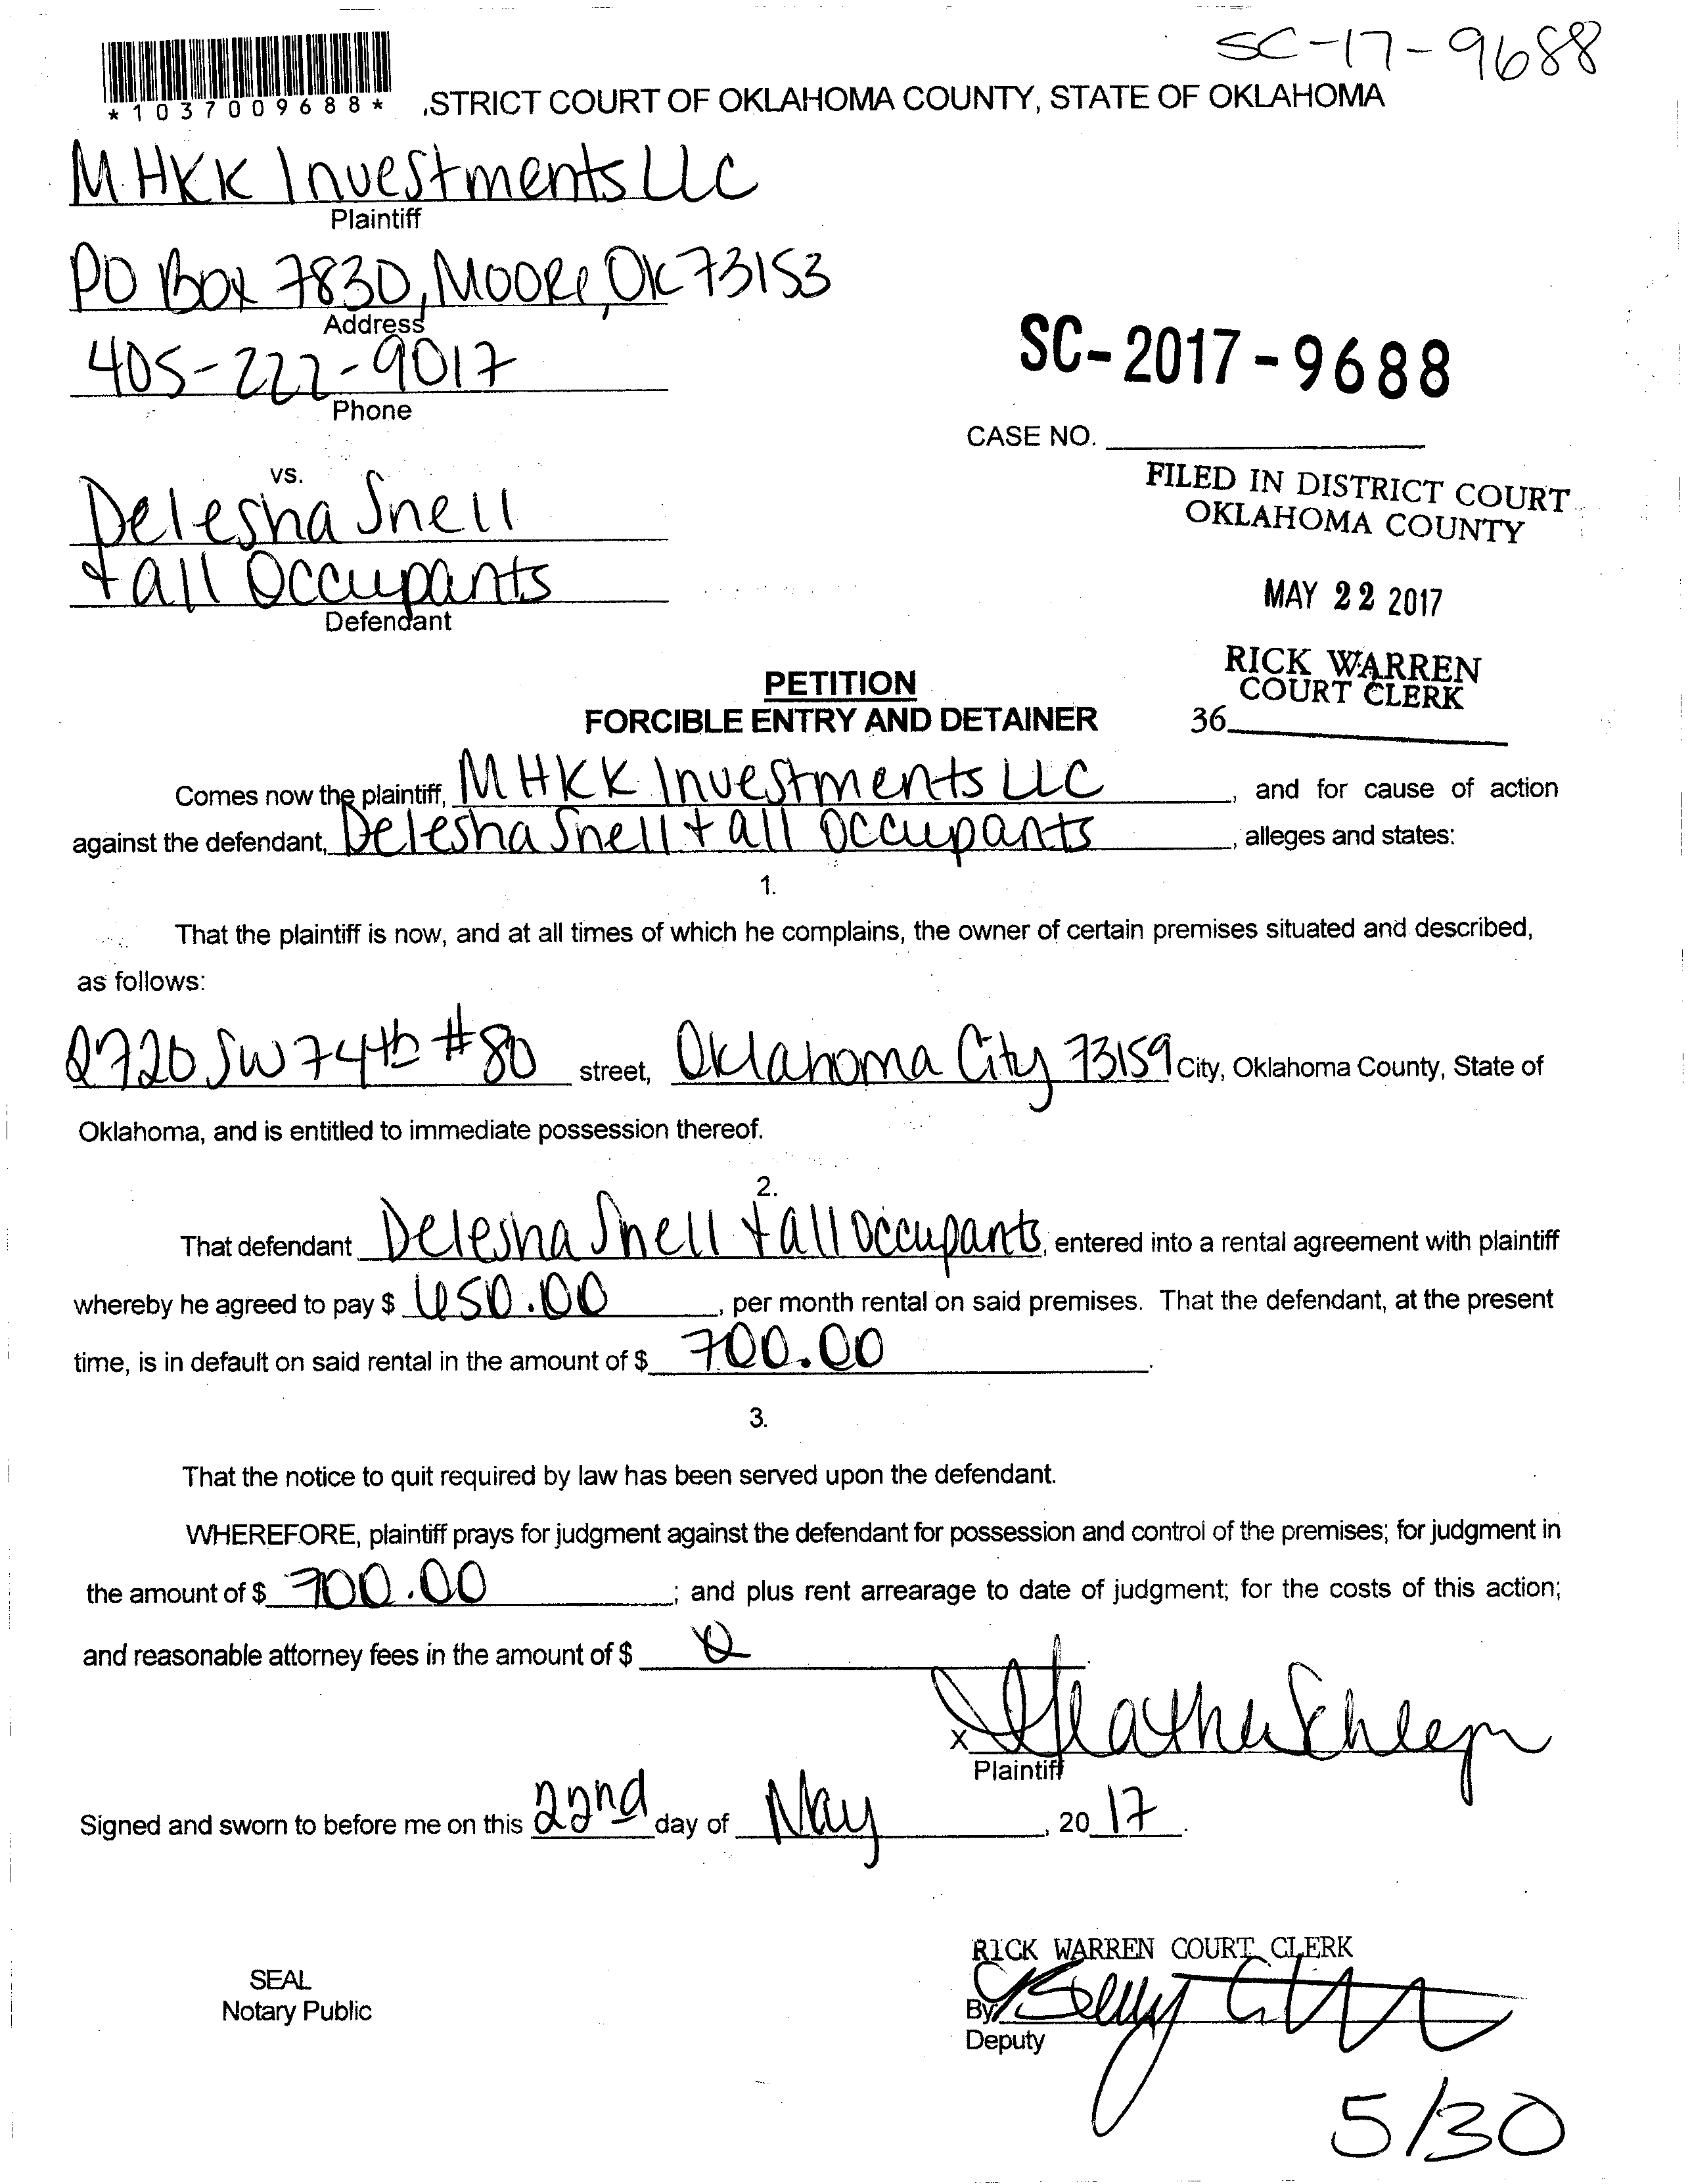 SC-17-9688
*1037009688*
.STRICT COURT OF OKLAHOMA COUNTY, STATE OF OKLAHOMA
MHKK Investments LLC
Plaintiff
PO Box 7830, Moore, OK 73153
Address
405-222-9017
Phone
SC-2017-9688
CASE NO.
vs.
FILED IN DISTRICT COURT
OKLAHOMA COUNTY
Delesha Snell
+ all Occupants
Defendant
MAY 22 2017
RICK WARREN
COURT CLERK
36
PETITION
FORCIBLE ENTRY AND DETAINER
Comes now the plaintiff, MHKK Investments LLC, and for cause of action
against the defendant, Delesha Snell + all occupants, alleges and states:
1.
That the plaintiff is now, and at all times of which he complains, the owner of certain premises situated and described,
as follows:
2720 SW 74th #80 street, Oklahoma City 73159 City, Oklahoma County, State of
Oklahoma, and is entitled to immediate possession thereof.
2.
That defendant Delesha Snell + all occupants, entered into a rental agreement with plaintiff
whereby he agreed to pay $ 650.00, per month rental on said premises. That the defendant, at the present
time, is in default on said rental in the amount of $ 700.00.
3.
That the notice to quit required by law has been served upon the defendant.
WHEREFORE, plaintiff prays for judgment against the defendant for possession and control of the premises; for judgment in
the amount of $ 700.00; and plus rent arrearage to date of judgment; for the costs of this action;
and reasonable attorney fees in the amount of $
X Heather
Plaintiff
Signed and sworn to before me on this 22nd day of May, 2017.
RICK WARREN COURT CLERK
SEAL
Notary Public
By
Deputy
5/30